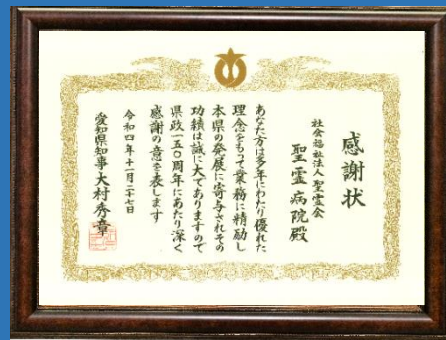 感謝状
社会福祉法人聖霊会
聖霊病院殿
あなた方は多年にわたり優れた
理念をもって業務に精励し
本県の発展に寄与されその
功績は誠に大でありますので
県政一五〇周年にあたり深く
感謝の意を表します
令和四年十一月二十七日
愛知県知事大村秀章